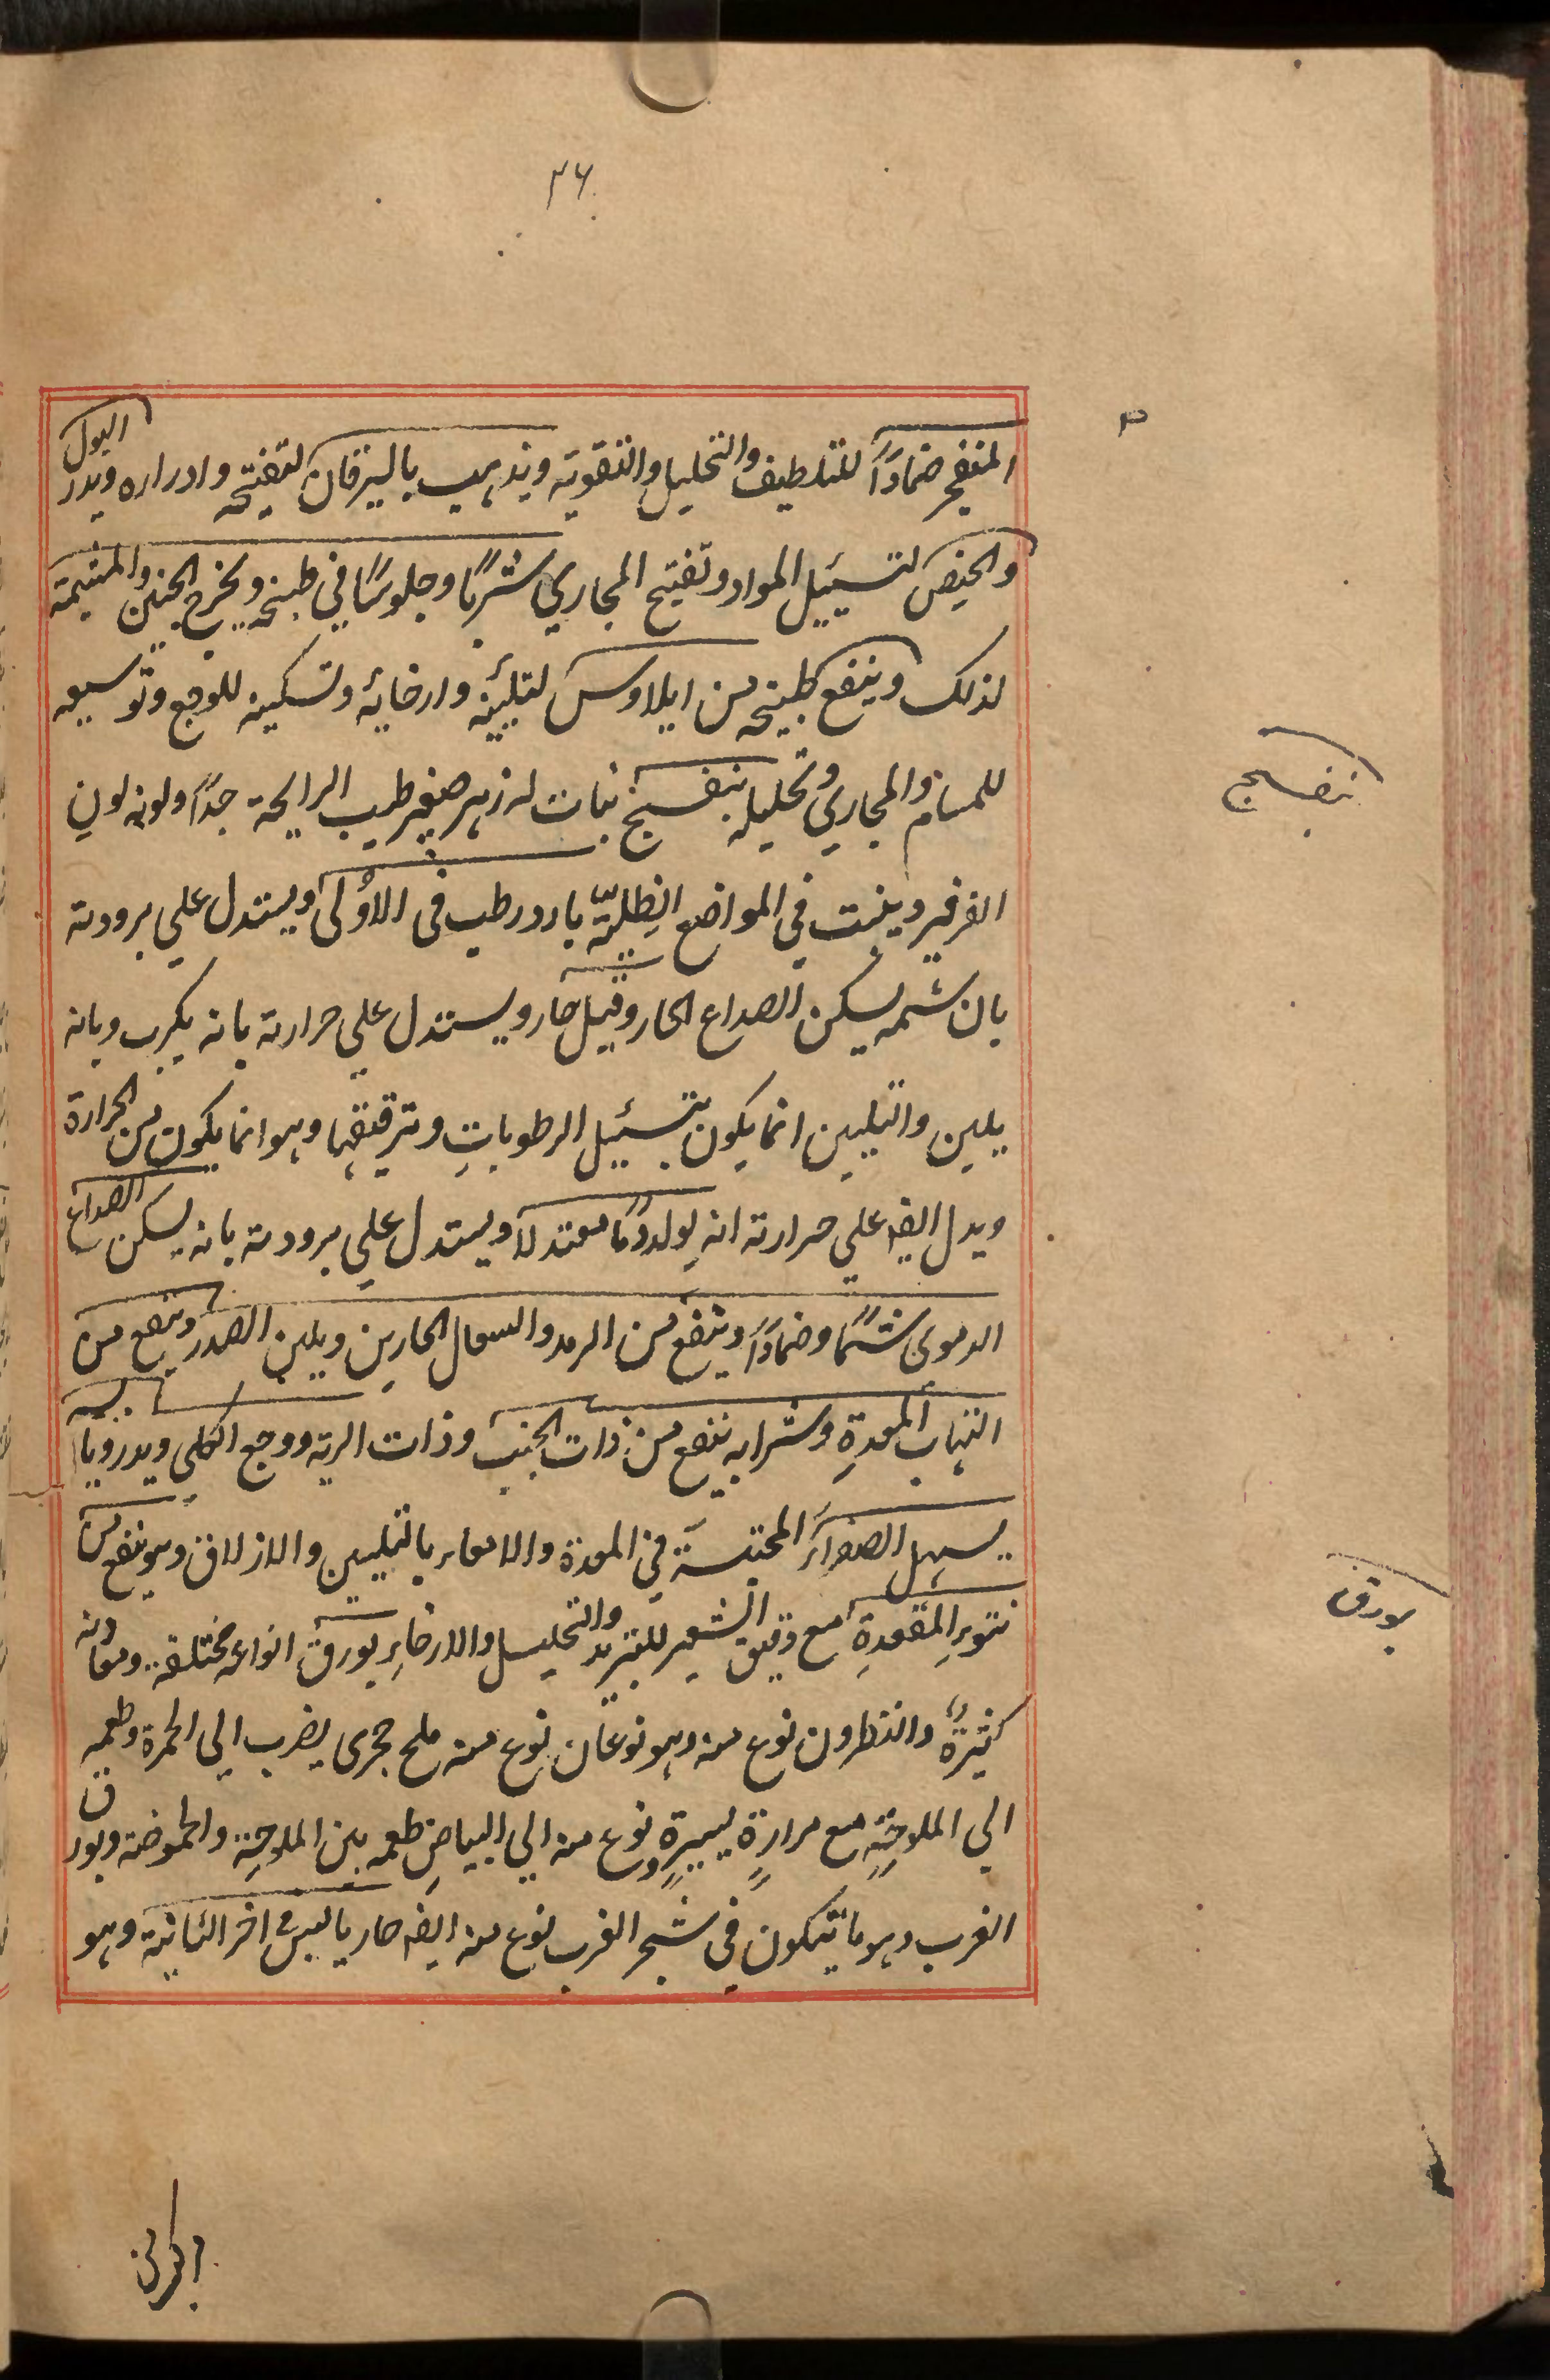 ٣٦
المنفجر ضمادًا للتلطيف والتحليل والتقوية ويذهب باليرقان لتفتيحه وادراره ويدر البول
والحيض لتسييل المواد وتفتيح المجاري شربًا وجلوسًا في طبيخه ويخرج الجنين والمشيمة
لذلك وينفع طبيخه من ايلاوس لتليينه وارخائه وتسكينه للوجع وتوسيعه
للمسام والمجاري وتحليله بنفسج نبات له زهر صغير طيب الرايحة جدًا ولونه لون
الفرفير وينبت في المواضع الظِلِيّة بارد رطب في الاُولى ويستدل علي برودته
بان شمه يسكن الصداع الحار وقيل حار ويستدل علي حرارته بانه يكرب وبانه
يلين والتليين انما يكون بتسييل الرطوباتِ وترقيقها وهو انما يكون من الحرارة
ويدل ايضا علي حرارته انه يولد دمًا معتدلًا ويستدل علي برودته بانه يسكن الصداع
الدموى شمًا وضمادًا وينفع من الرمد والسعال الحارين ويلين الصدر وينفع من
التهاب المعدةِ وشرابه ينفع من ذات الجنب وذات الرية ووجع الكلى ويدر ويابسه
يسهل الصفراءَ المحتبسَة في المعدة والامعاء بالتليين والازلاق وهو ينفع من
نتوءِ المقعدةِ مع دقيق الشعير للتبريد والتحليل والارخاءِ بورق انواعه مختلفة ومعادنه
كثيرةٌ والنطرون نوع منه وهو نوعان نوع منه ملح حجرى يضرب الي الحمرة وطعمه
الي الملوحةِ مع مرارةٍ يسيرةٍ ونوع منه الي البياضِ طعمه بين الملوحِة والحموضة وبورق
الغرب وهو ما يتكون في شجر الغرب نوع منه ايضا حار يابس في اخر الثانية وهو
بنفسج
بورق